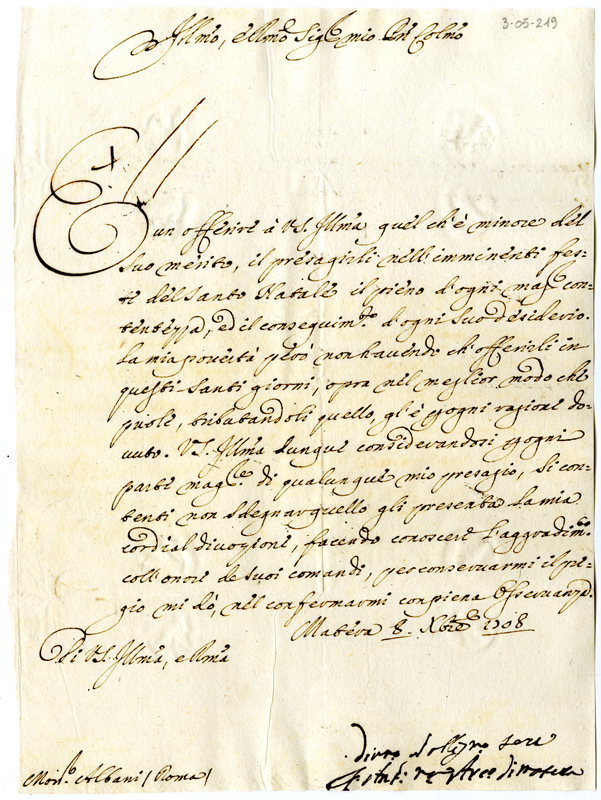 3-05-219
Illmo, e Rmo Sigre mio Pne Colmo
È un offerire à VS. Illma quel ch'è minore del
suo merito, il presagirli nell'imminenti fes-
te del Santo Natale il pieno d'ogni magr con-
tentezza, ed il conseguimto d'ogni suo desiderio.
La mia povertà però non havendo ch'offerirli in
questi Santi giorni, opra nel meglior modo che
puole, tributandoli quello, gl'è p ogni ragione do-
vuto. VS. Illma dunque considerandosi p ogni
parte magre di qualunque mio presagio, si con-
tenti non sdegnar quello gli presenta la mia
cordial divozione, facendo conoscere l'aggradimto
coll'onore de suoi comandi, per conservarmi il pre-
gio mi dò, nel confermarmi con piena osservanza.
Matera 8. Xbre 1708
Di VS. Illma, e Rma
Monsr Albani (Roma)